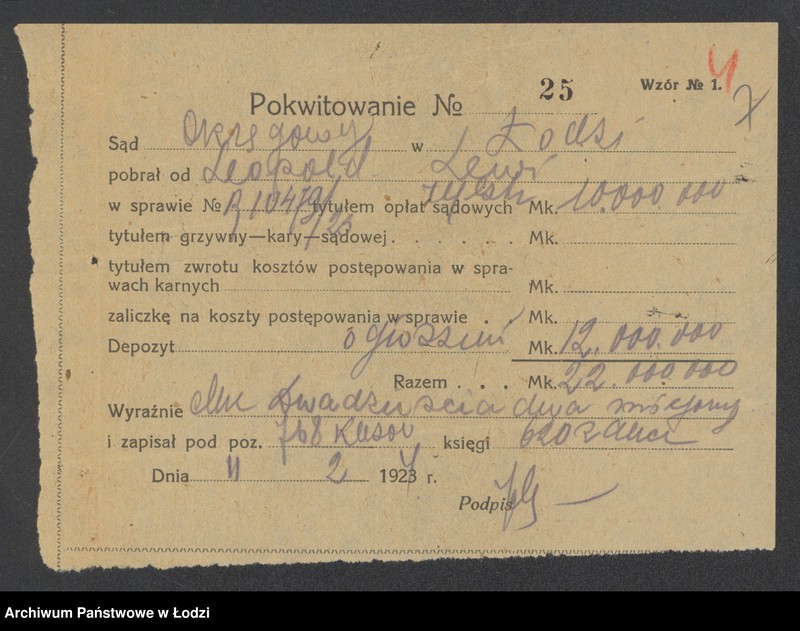 Wzór № 1. 4
Pokwitowanie № 25
Sąd Okręgowy w Łodzi
pobrał od Leopold Lewi
w sprawie № R 10479/23 tytułem opłat sądowych rejestr Mk. 10.000.000
tytułem grzywny—kary—sądowej . . . . . . Mk.
tytułem zwrotu kosztów postępowania w spra-
wach karnych Mk.
zaliczkę na koszty postępowania w sprawie . Mk.
Depozyt ogłoszeń Mk. 12.000.000
Razem . . . Mk. 22.000.000
Wyraźnie Mk dwadzieścia dwa miljony
i zapisał pod poz. 768 Kasow księgi
Dnia 11 2 1924 r.
Podpis
Archiwum Państwowe w Łodzi